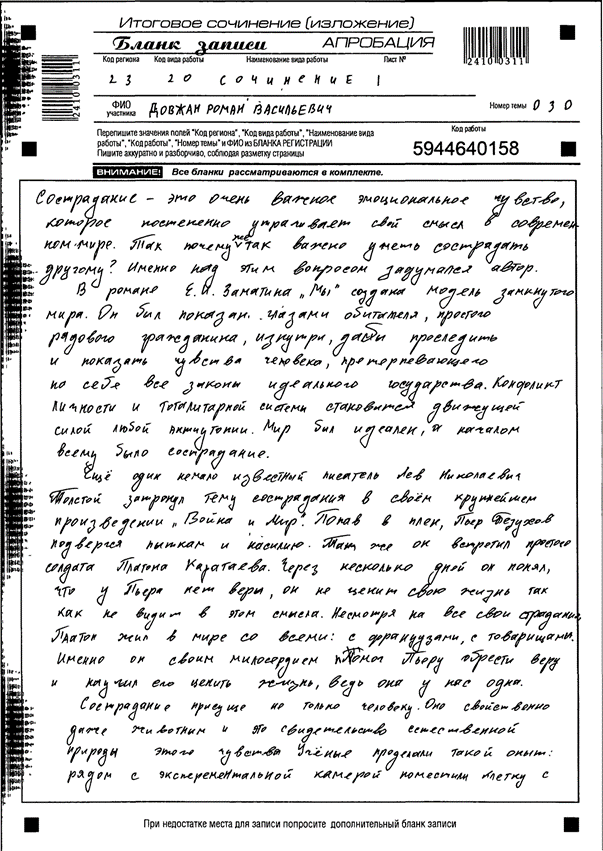 Итоговое сочинение (изложение)
Бланк записи АПРОБАЦИЯ
2410 0311
2410 0311
Код региона Код вида работы Наименование вида работы Лист №
2 3 2 0 С О Ч И Н Е Н И Е 1
ФИО участника ДОВЖАН РОМАН ВАСИЛЬЕВИЧ Номер темы 0 3 0
Перепишите значения полей "Код региона", "Код вида работы", "Наименование вида
работы", "Код работы", "Номер темы" и ФИО из БЛАНКА РЕГИСТРАЦИИ
Пишите аккуратно и разборчиво, соблюдая разметку страницы
Код работы
5944640158
ВНИМАНИЕ! Все бланки рассматриваются в комплекте.
Сострадание – это очень важное эмоциональное чувство,
которое постепенно утрачивает свой смысл в современ-
ном мире. Так почему же так важно уметь сострадать
другому? Именно над этим вопросом задумался автор.
В романе Е.И. Заматина „Мы" создана модель замкнутого
мира. Он был показан глазами обитателя, простого
рядового гражданина, изнутри, дабы проследить
и показать чувства человека, претерпевающего
на себе все законы идеального государства. Конфликт
личности и тоталитарной системы становится движущей
силой любой антиутопии. Мир был идеален, а началом
всему было сострадание.
Ещё один немало известный писатель Лев Николаевич
Толстой затронул тему сострадания в своём крупнейшем
произведении „Война и Мир". Попав в плен, Пьер Безухов
подвергся пыткам и насилию. Там же он встретил простого
солдата Платона Каратаева. Через несколько дней он понял,
что у Пьера нет веры, он не ценит свою жизнь так
как не видит в этом смысла. Несмотря на все свои страдания,
Платон жил в мире со всеми: с французами, с товарищами.
Именно он своим милосердием помог Пьеру обрести веру
и научил его ценить жизнь, ведь она у нас одна.
Сострадание присуще не только человеку. Оно свойственно
даже животным и это свидетельство естественной
природы этого чувства Учёные проделали такой опыт:
рядом с эксперементальной камерой поместили клетку с
При недостатке места для записи попросите дополнительный бланк записи